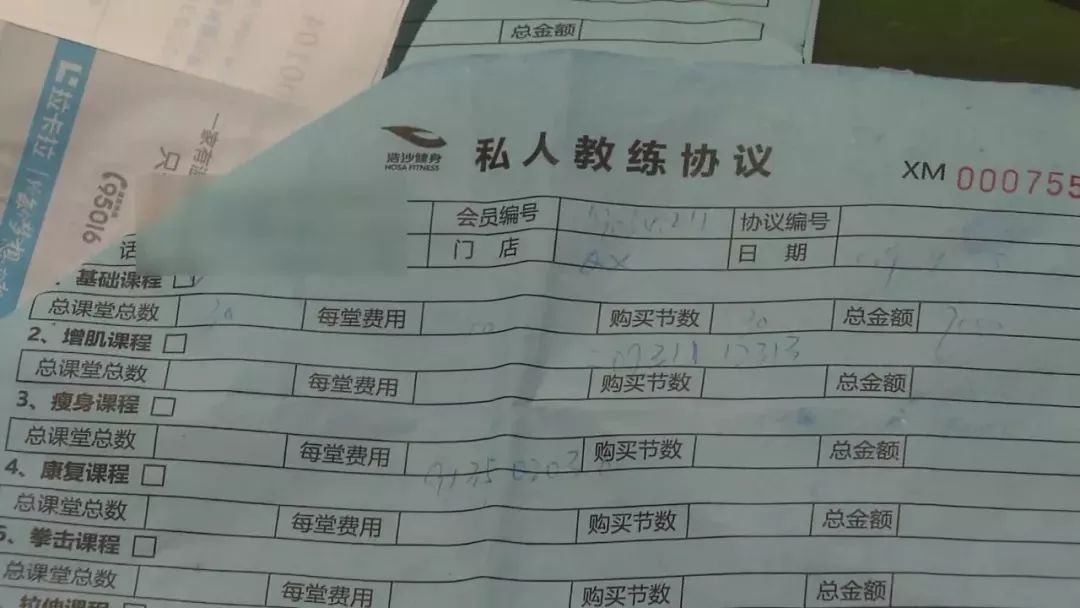 总金额
拉卡拉
95016
一家有
只
浩沙健身
HOSA FITNESS
私人教练协议
XM 000755
会员编号 协议编号
话 门 店 日 期
基础课程
总课堂总数 30 每堂费用 购买节数 30 总金额
2、增肌课程
总课堂总数 每堂费用 购买节数 总金额
3、瘦身课程
总课堂总数 每堂费用 购买节数 总金额
4、康复课程
总课堂总数 每堂费用 购买节数 总金额
5、拳击课程
总课堂总数 每堂费用 购买节数 总金额
拉伸课程